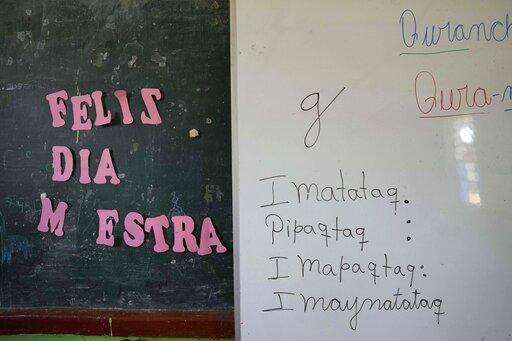 FELIS
DIA
M ESTRA
Quranch
Qura-
g
Imatataq.
Pipaqtaq :
Imapaqtaq:
Imaynatataq